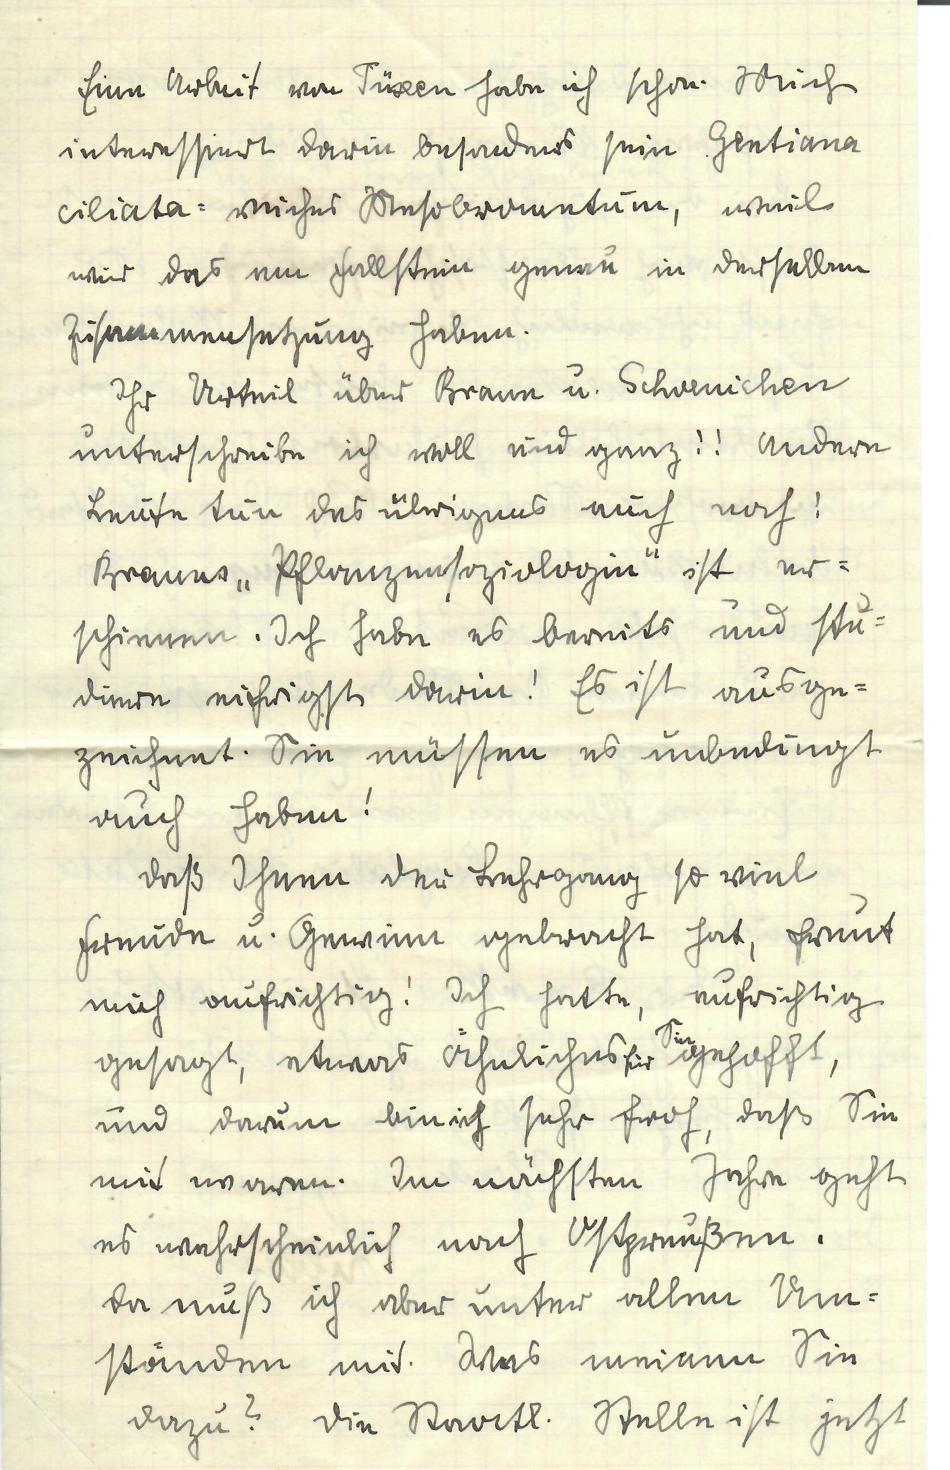 Eine Arbeit von Tüxen habe ich schon. Mich
interessiert darin besonders sein Gentiana
ciliata= reiches Mesobrometum, weil
wir das am Fallstein genau in derselben
Zusammensetzung haben.
Ihr Urteil über Braun u. Schoenichen
unterschreibe ich voll und ganz!! Andere
Leute tun das übrigens auch noch!
Brauns „Pflanzensoziologie" ist er=
schienen. Ich habe es bereits und stu=
diere eifrigst darin! Es ist ausge=
zeichnet. Sie müssen es unbedingt
auch haben!
Daß Ihnen der Lehrgang so viel
Freude u. Gewinn gebracht hat, freut
mich aufrichtig! Ich hatte, aufrichtig
gesagt, etwas Ähnliches für Sie gehofft,
und darum bin ich sehr froh, daß Sie
mit waren. Im nächsten Jahre geht
es wahrscheinlich nach Ostpreußen.
Da muß ich aber unter allen Um=
ständen mit. Was meinen Sie
dazu? Die Staatl. Stelle ist jetzt